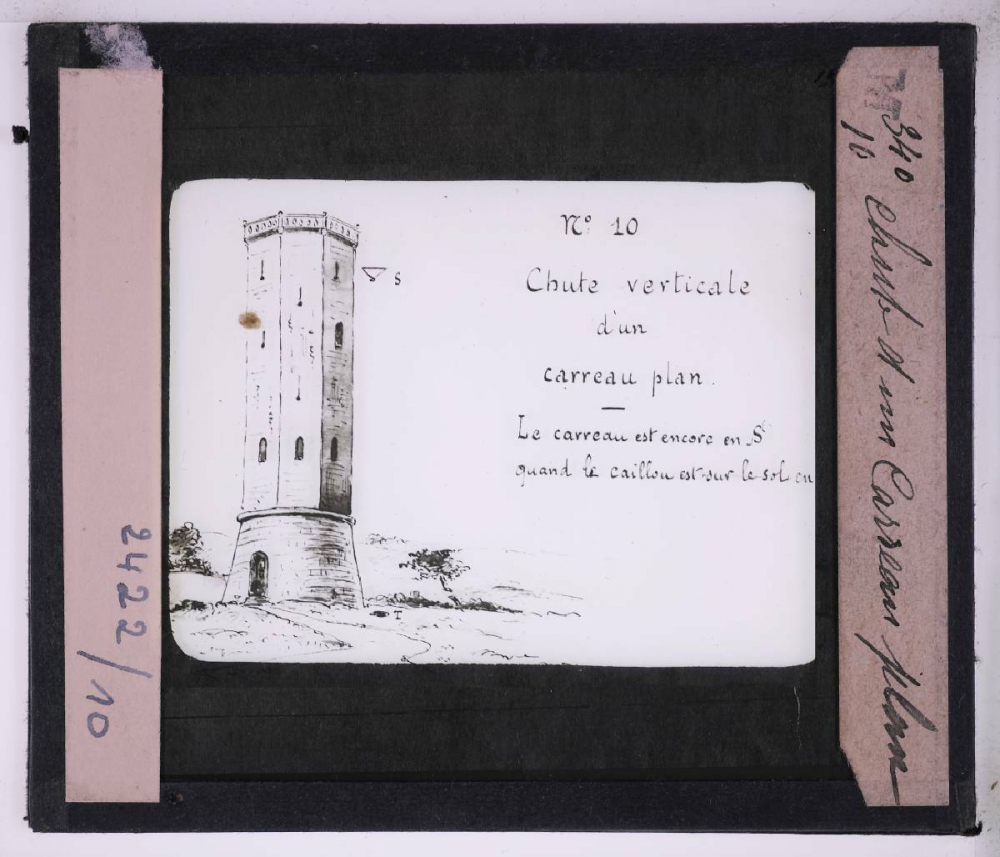 S
N° 10
Chute verticale
d'un
carreau plan.
Le carreau est encore en S
quand le caillou est sur le sol en
I
2422/10
340 Chute d'un Carreau plan
10